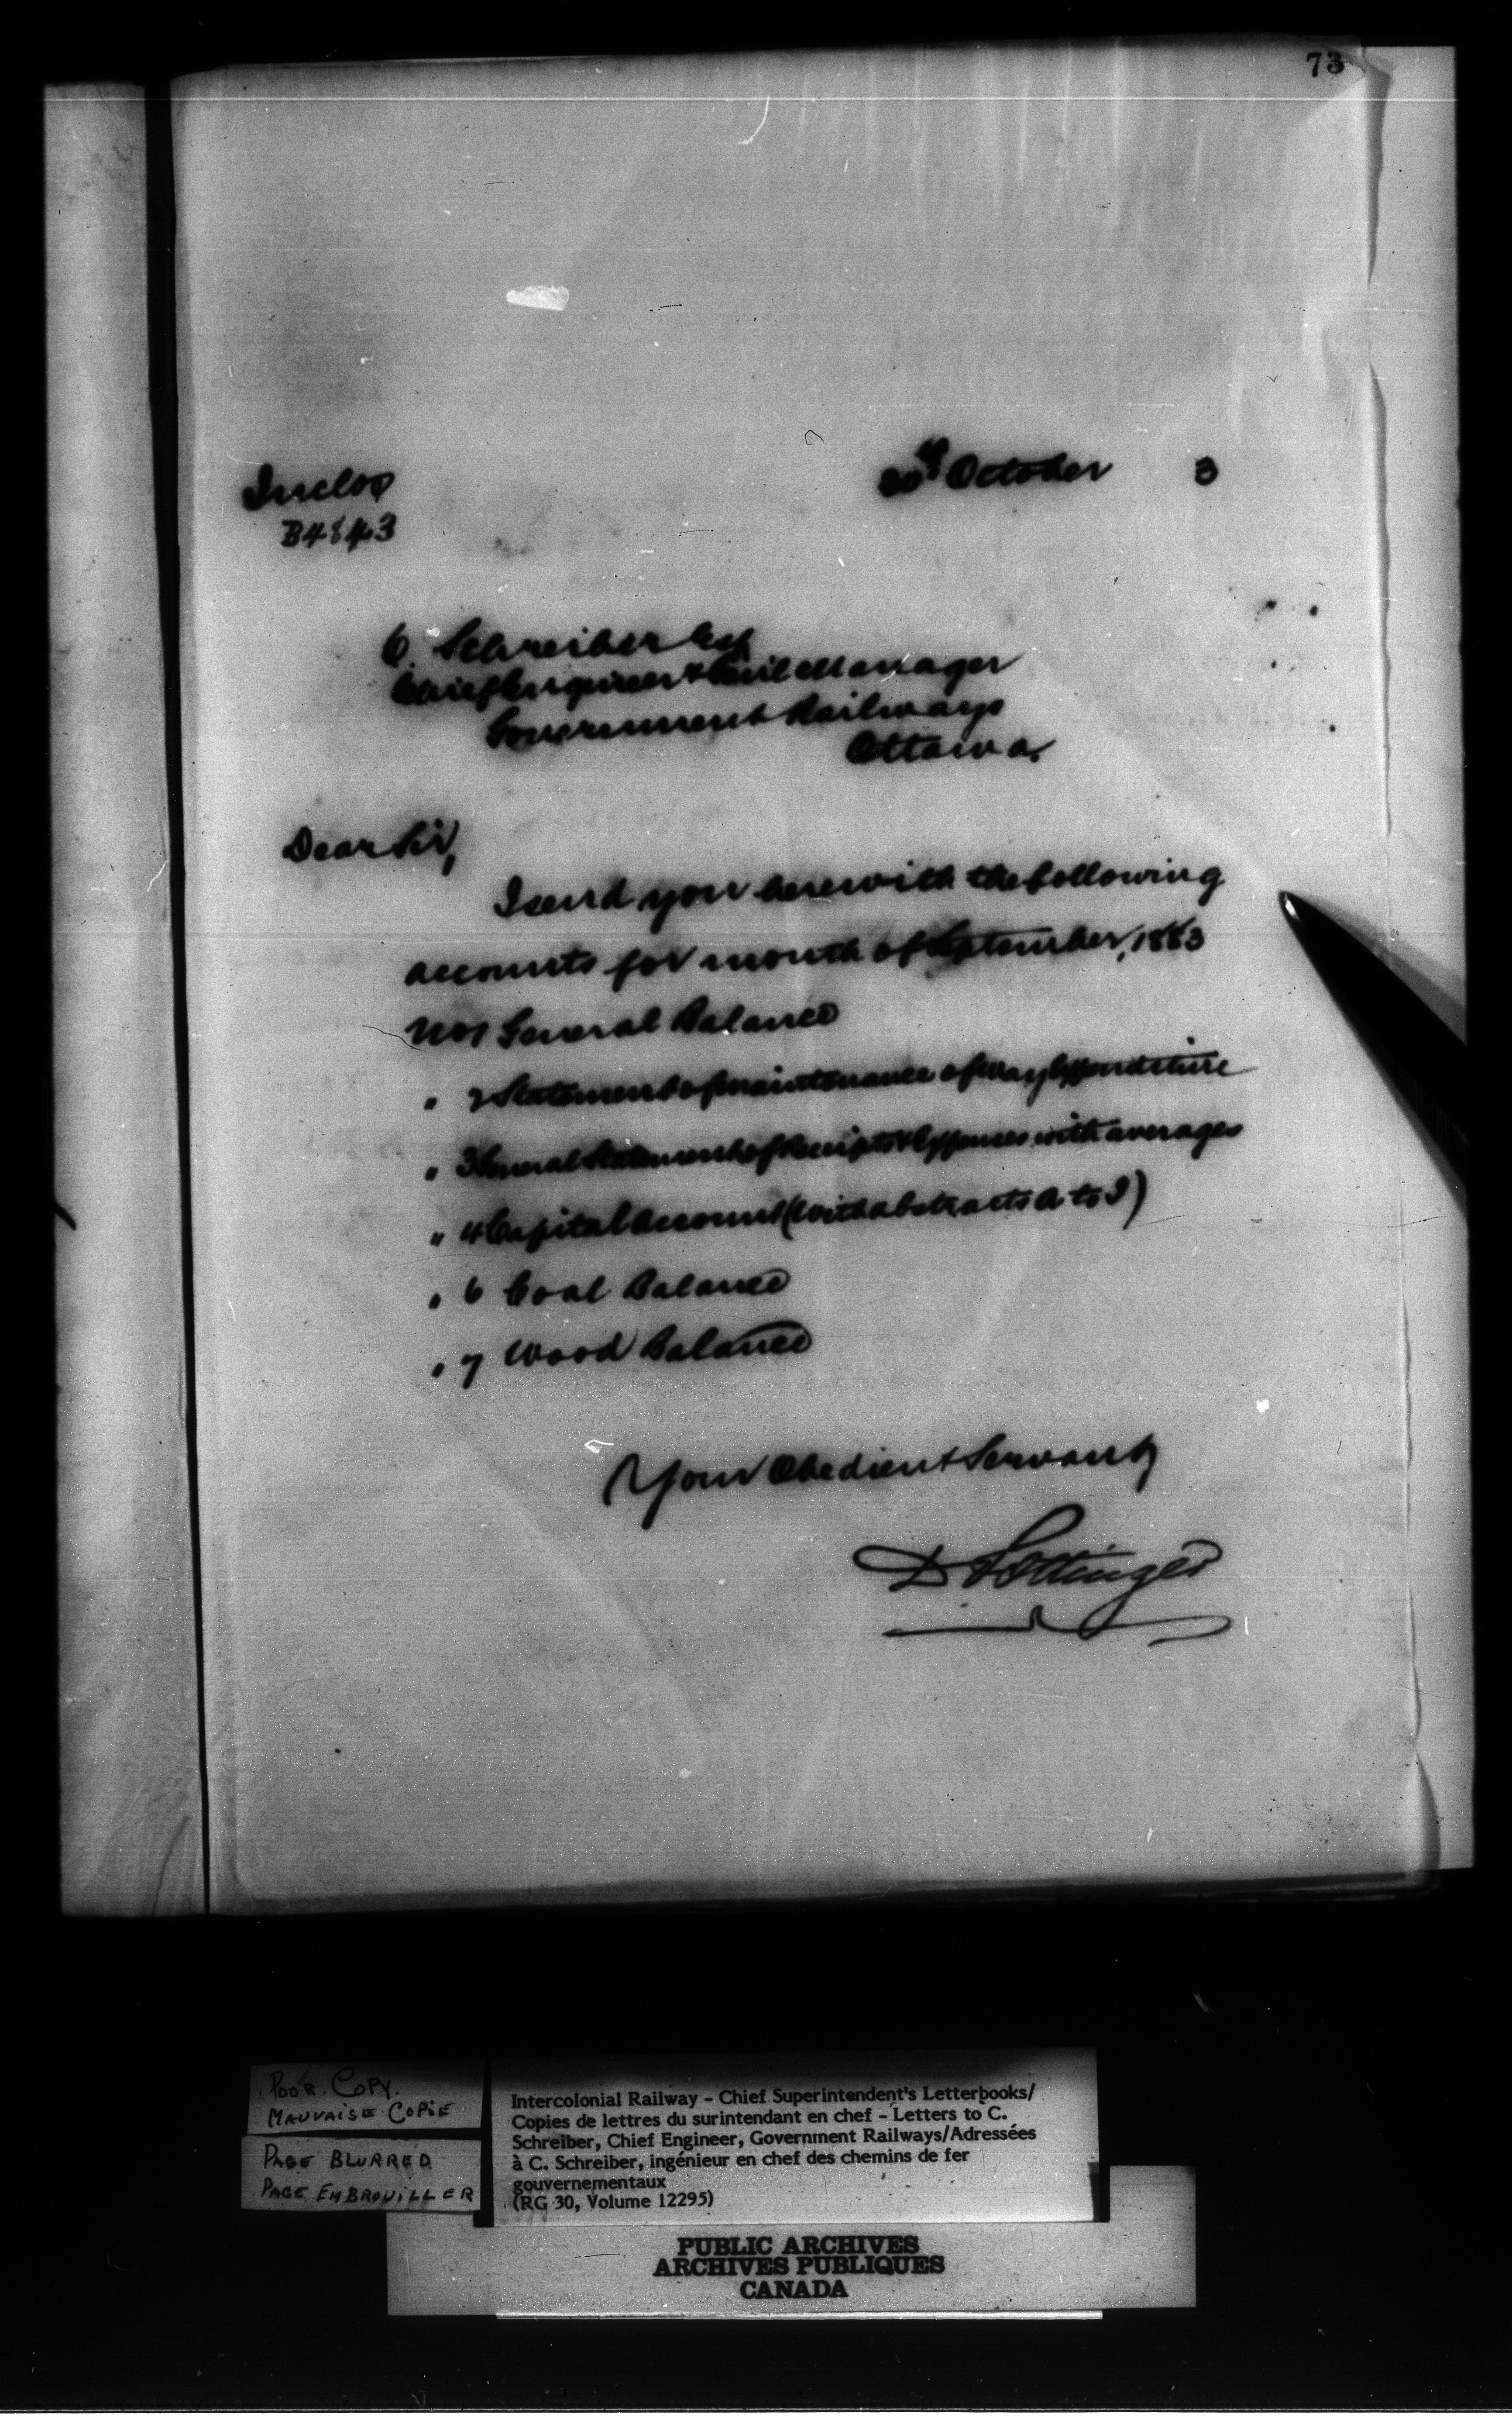 73
Inclos
B4843
20th October 3
C. Schreiber Esq
Chief Engineer & Genl Manager
Government Railways
Ottawa.
Dear Sir,
I send you herewith the following
accounts for month of September, 1883
No 1 General Balance
" 2 Statement of Maintenance of Way Expenditure
" 3 General Statement of Receipts & Expenses with averages
" 4 Capital Account (with abstracts A to I)
" 6 Coal Balance
" 7 Wood Balance
Your Obedient Servant
D Pottinger
POOR COPY.
MAUVAISE COPIE
PAGE BLURRED
PAGE EMBROUILLER
Intercolonial Railway - Chief Superintendent's Letterbooks/
Copies de lettres du surintendant en chef - Letters to C.
Schreiber, Chief Engineer, Government Railways/Adressées
à C. Schreiber, ingénieur en chef des chemins de fer
gouvernementaux
(RG 30, Volume 12295)
PUBLIC ARCHIVES
ARCHIVES PUBLIQUES
CANADA